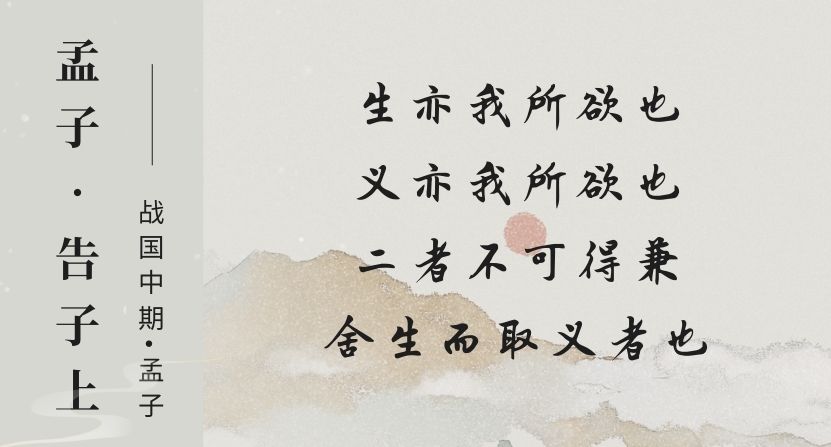 孟子·告子上
战国中期·孟子
生亦我所欲也
义亦我所欲也
二者不可得兼
舍生而取义者也